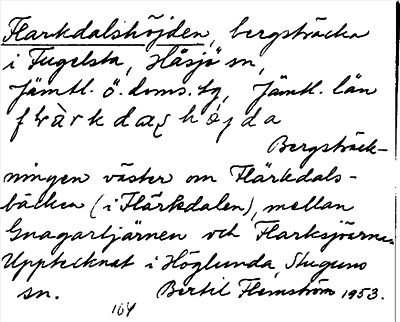 Flarkdalshöjden, bergsträcka
i Fugelsta, Håsjö sn,
Jämtl. ö. doms. tg, Jämtl. län
Bergsträck-
ningen väster om Flärkdals-
bäcken (i Flärkdalen), mellan
Gnagartjärnen och Flarksjöarna
Upptecknat i Höglunda, Stuguns
sn. Bertil Flemström 1953.
164